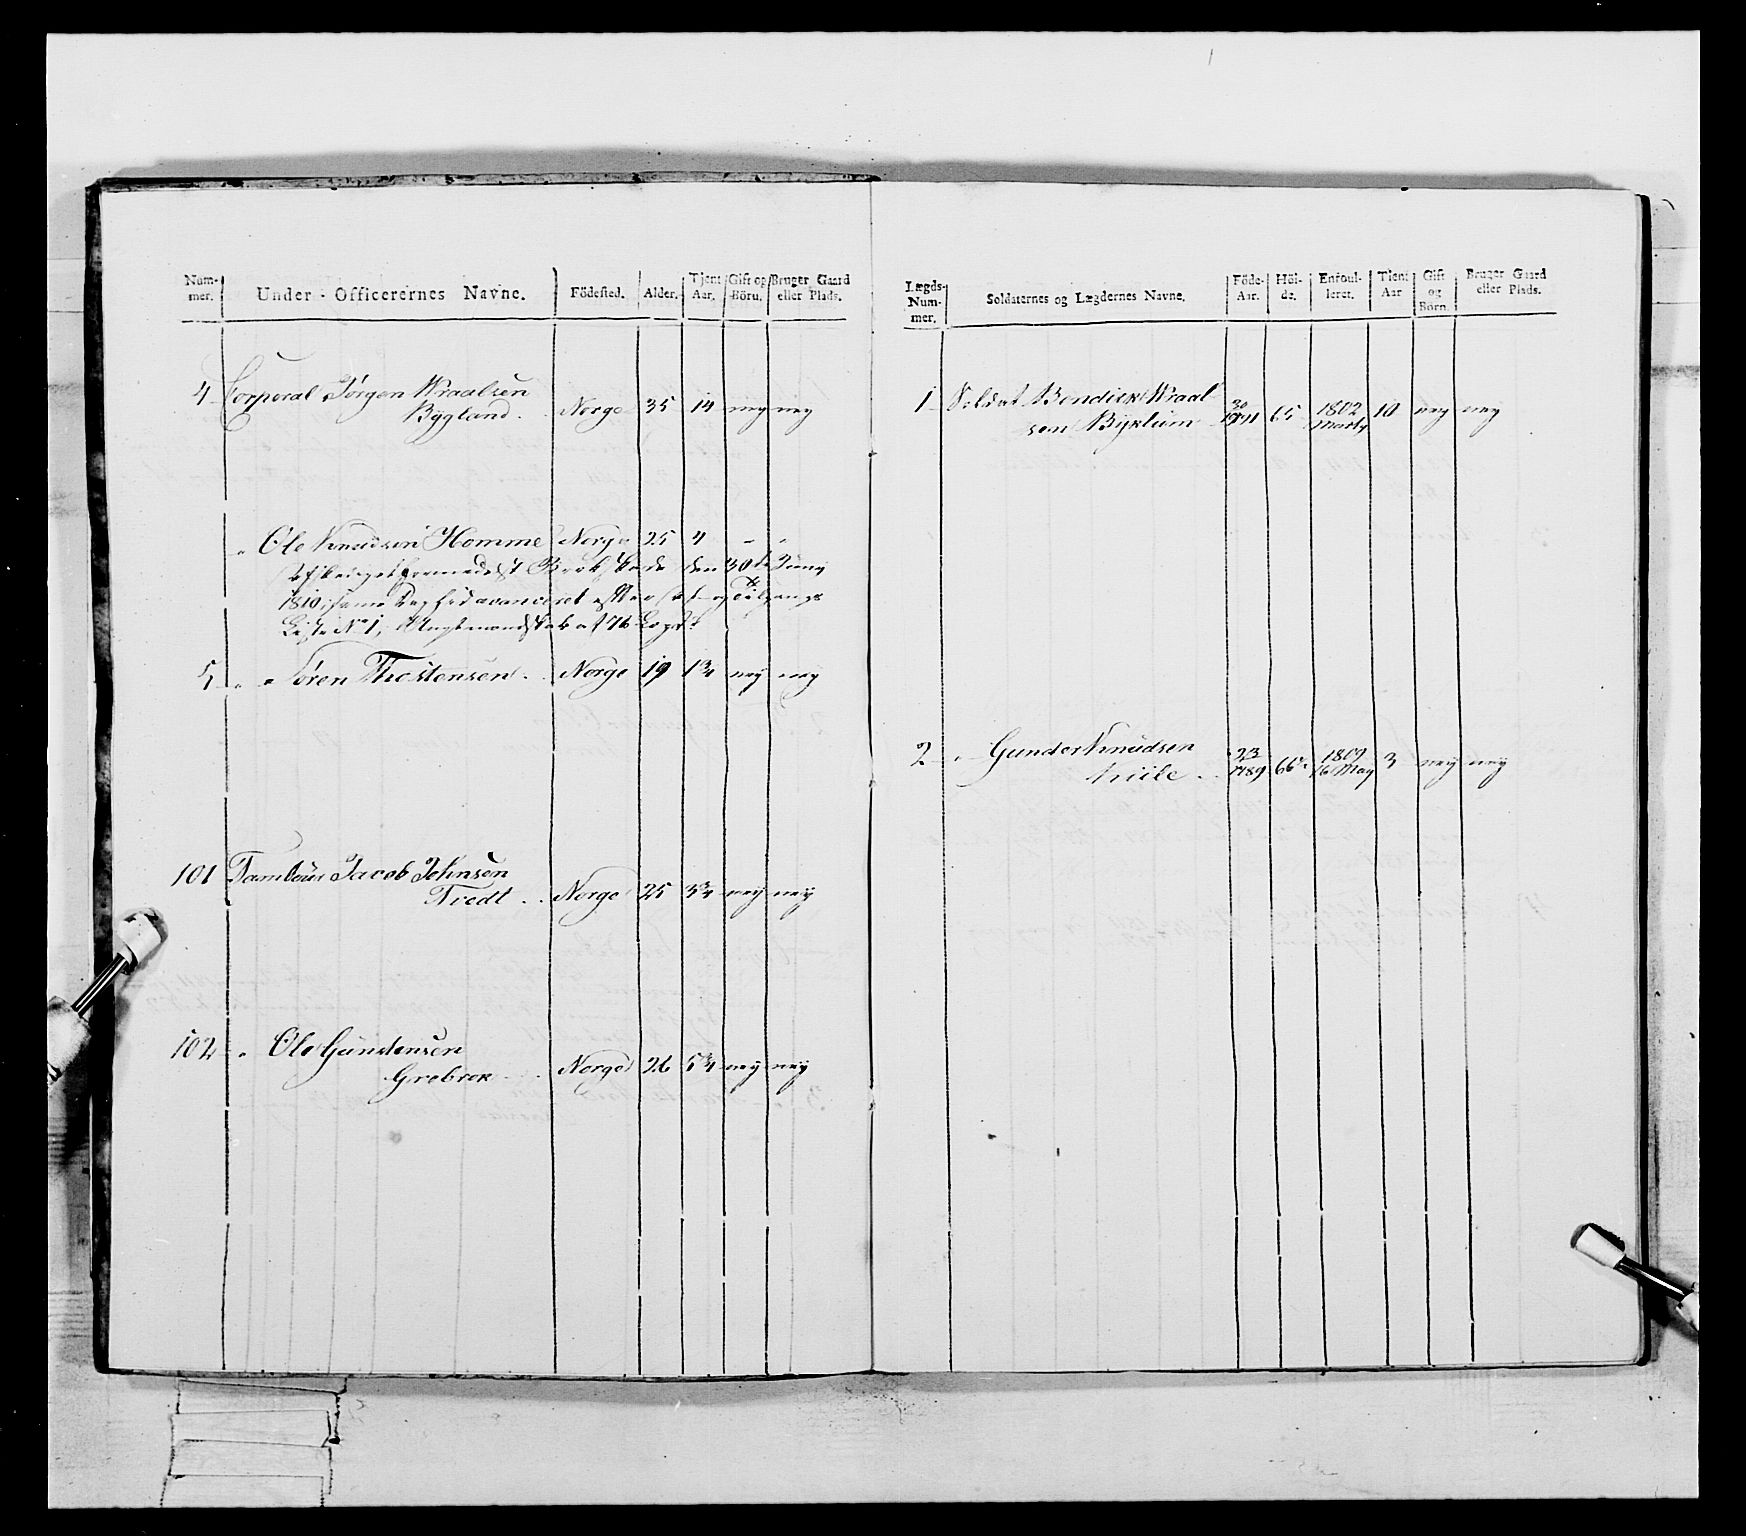 Num-
mer.
Under-Officerernes Navne.
Födested.
Alder.
Tjent
Aar.
Gift og
Börn.
Bruger Gaard
eller Plads.
4 Corporal Jørgen Wraalsen
Bygland. Norge 35 14 ney ney
" Ole Knudsen Homme Norge 25 4 - "
Afskediget formedelst Brokskade den 30te Juny
1810, samme Dag hid avanceret efter Af- og Tilgangs
Liste No 1,
5 " " Søren Thostensen. Norge 19 1 3/4 ney ney
101 Tambour Jacob Johnsen
Tredt Norge 25 3 3/4 ney ney
102 " Ole Gunstensen
Grebrok Norge 26 5 3/4 ney ney
Lægds-
Num-
mer.
Soldaternes og Lægdernes Navne.
Föde-
Aar.
Höi-
de.
Enroul-
leret.
Tjent
Aar
Gift
og
Börn.
Bruger Gaard
eller Plads.
1 Soldat Bendick Wraal 30 1802
sen Byklum 65 Marty 10 ney ney
2 " Gunder Knudsen 23 1809
1789 66 16 May 3 ney ney